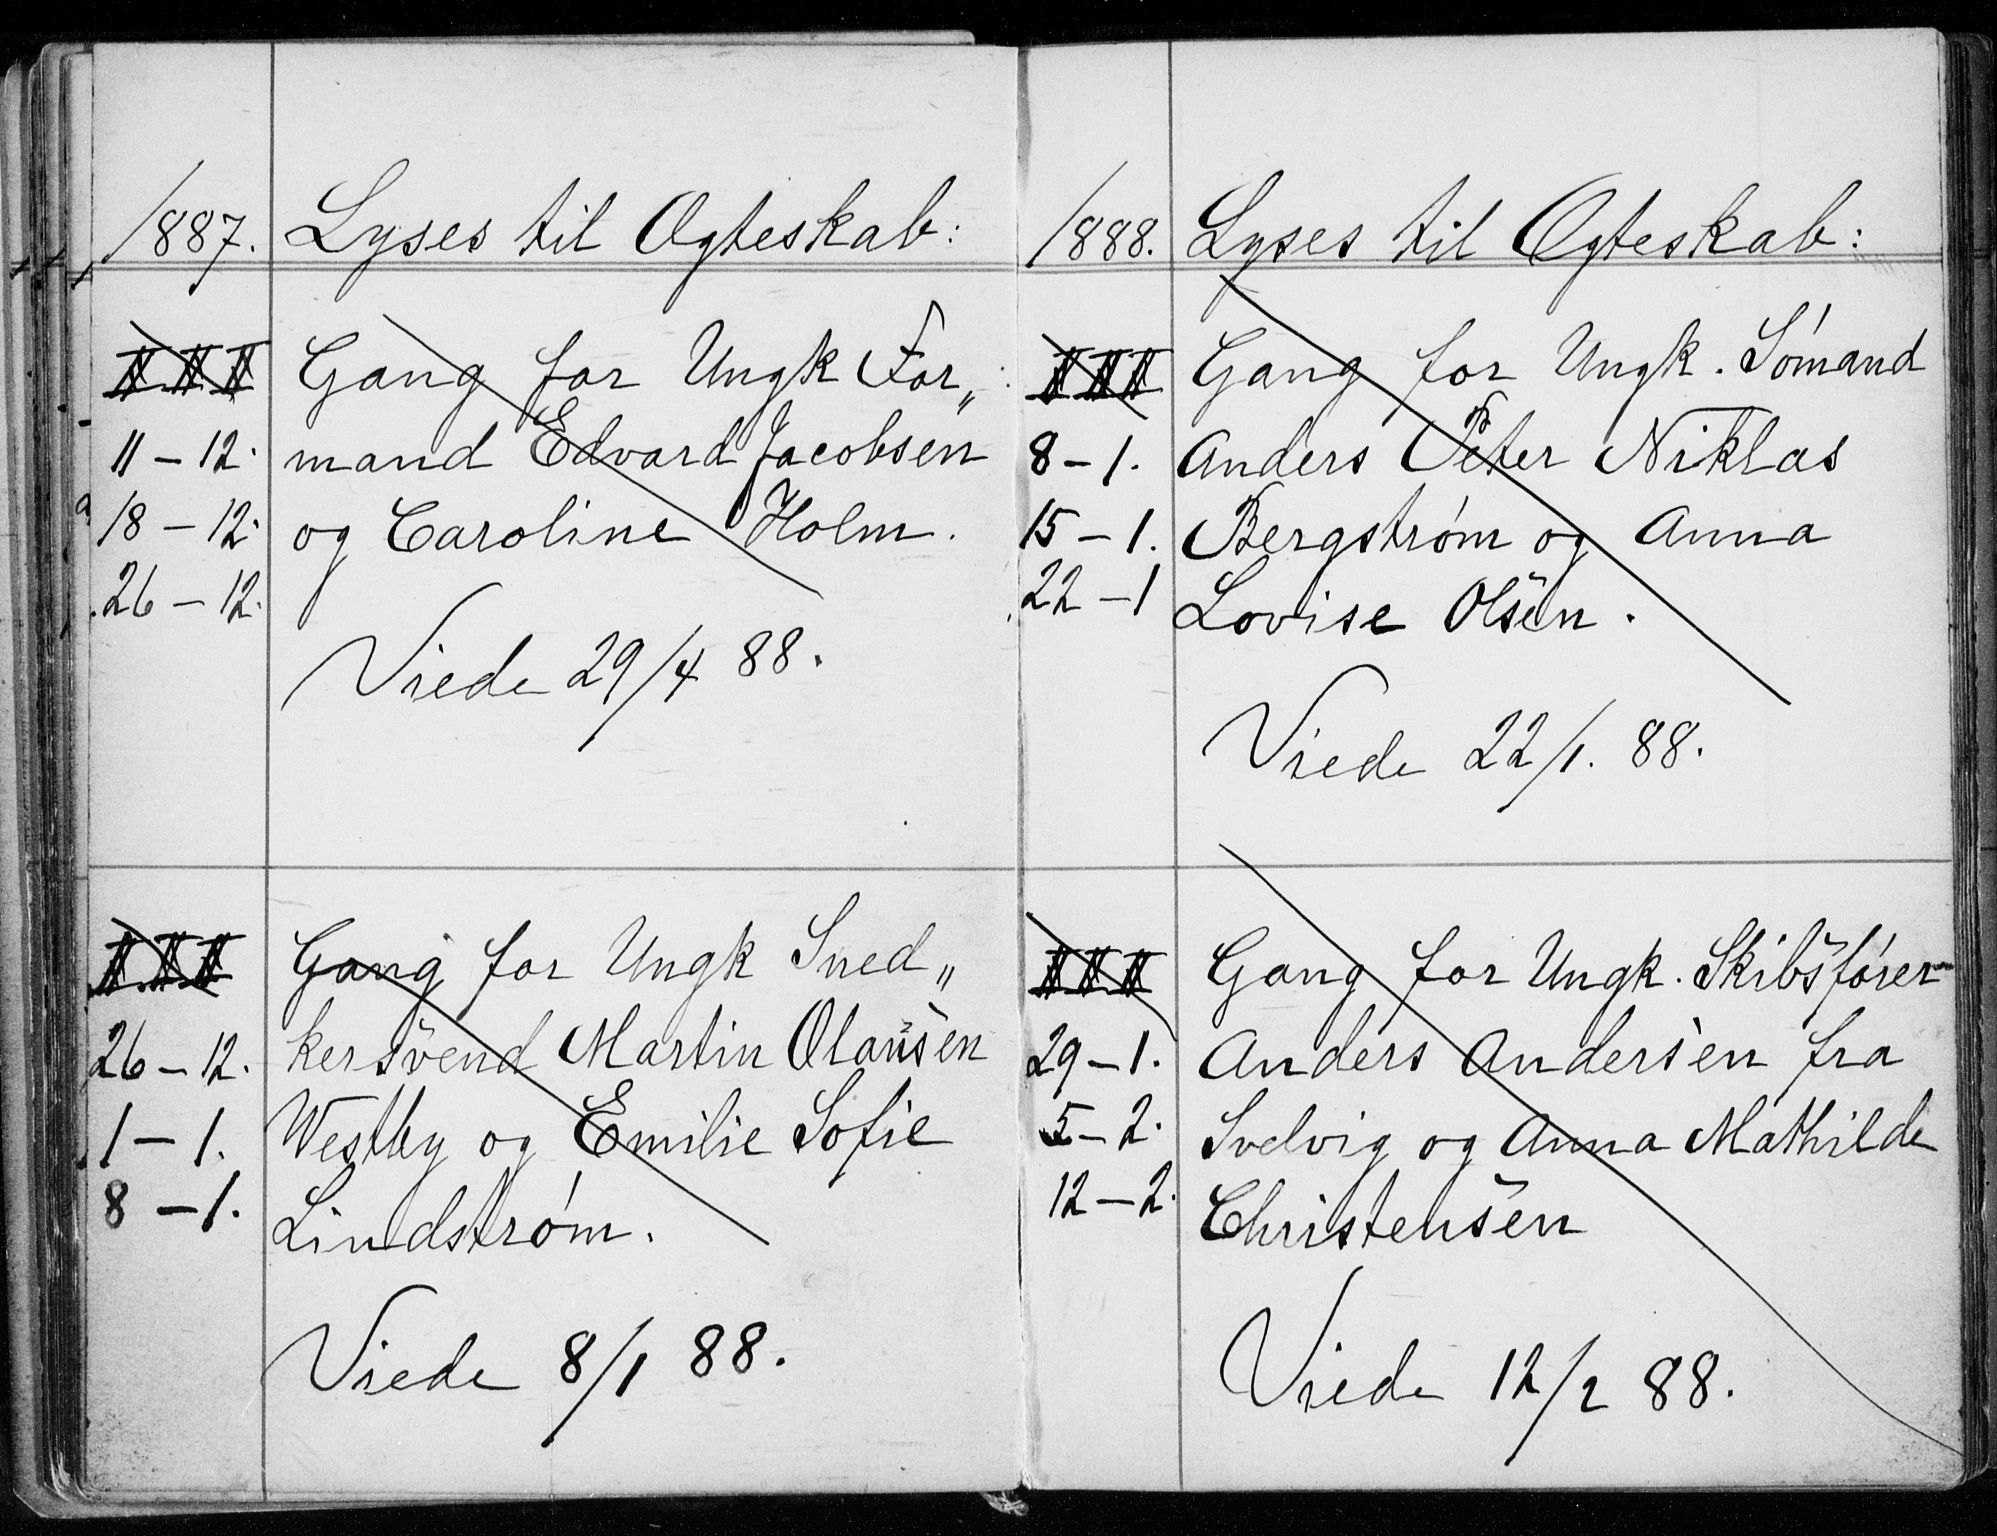 1887. Lyses til Ægteskab:
I II III Gang for Ungk For„
11 – 12. mand Edvard Jacobsen
18 – 12. og Caroline Holm.
26 – 12.
Viede 29/4 88.
I II III Gang for Ungk Sned„
26 – 12. kersvend Martin Olausen
1 – 1. Westby og Emilie Sofie
8 – 1. Lindstrøm.
Viede 8/1 88.
1888. Lyses til Ægteskab:
I II III Gang for Ungk. Sómand
8 – 1. Anders Peter Niklas
15 – 1. Bergstrøm og Anna
22 – 1 Lovise Olsen.
Viede 22/1. 88.
I II III Gang for Ungk. Skibsfórer
29 – 1. Anders Andersen fra
5 – 2. Svelvig og Anna Mathilde
12 – 2. Christensen
Viede 12/2 88.